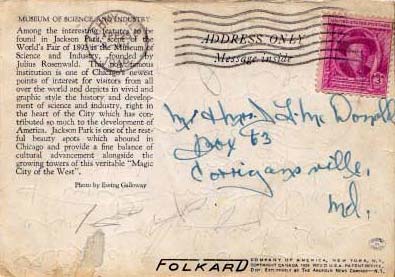 MUSEUM OF SCIENCE AND INDUSTRY
Among the interesting features to be
found in Jackson Park, scene of the
World's Fair of 1893 is the Museum of
Science and Industry, founded by
Julius Rosenwald. This now famous
institution is one of Chicago's newest
points of interest for visitors from all
over the world and depicts in vivid and
graphic style the history and develop-
ment of science and industry, right in
the heart of the City which has con-
tributed so much to the development of
America. Jackson Park is one of the rest-
ful beauty spots which abound in
Chicago and provide a fine balance of
cultural advancement alongside the
growing towers of this veritable "Magic
City of the West".
Photo by Ewing Galloway
ADDRESS ONLY
Message inside
3¢
Mr & Mrs J L Mc Donald
Box 63
Corrigansville,
Md.
FOLKARD
COMPANY OF AMERICA, NEW YORK, N.Y.